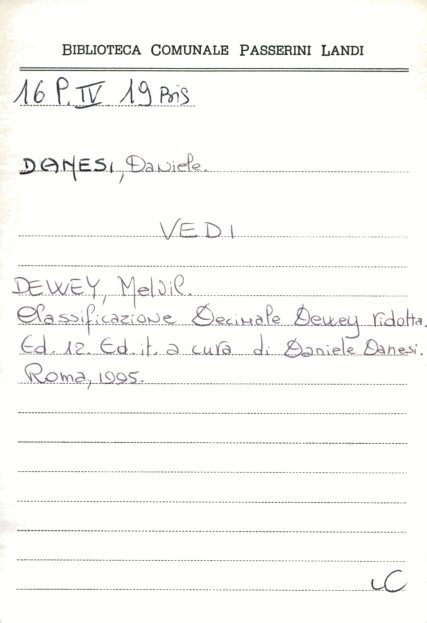 BIBLIOTECA COMUNALE PASSERINI LANDI
16 P. IV 19 Bis
DANESI, Daniele.
VEDI
DEWEY, Melvil.
Classificazione Decimale Dewey ridotta.
Ed. 12. Ed. it. a cura di Daniele Danesi.
Roma, 1995.